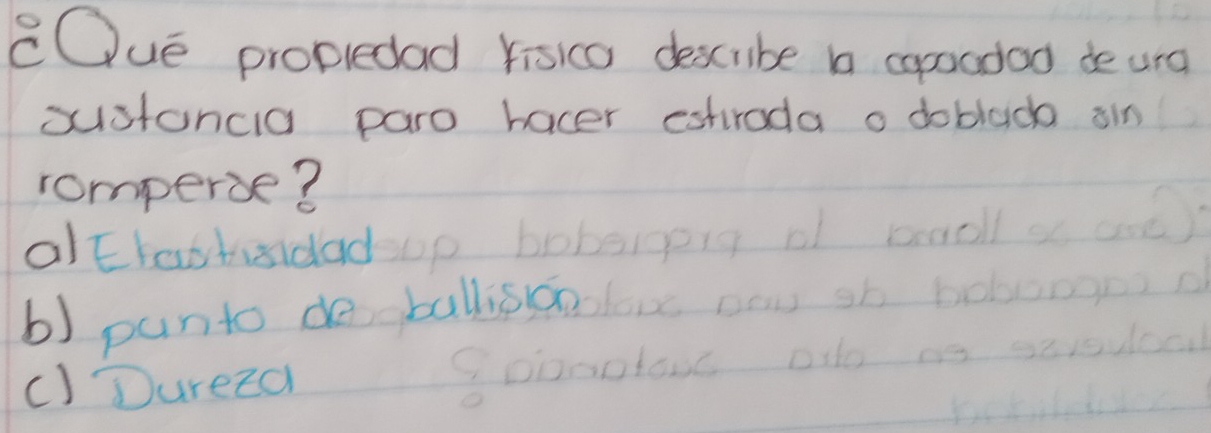 ¿Qué propiedad física describe la capacidad de una
sustancia para hacer estirada o doblada sin
romperse?
a) Elasticidad
b) punto de bullisión
c) Dureza